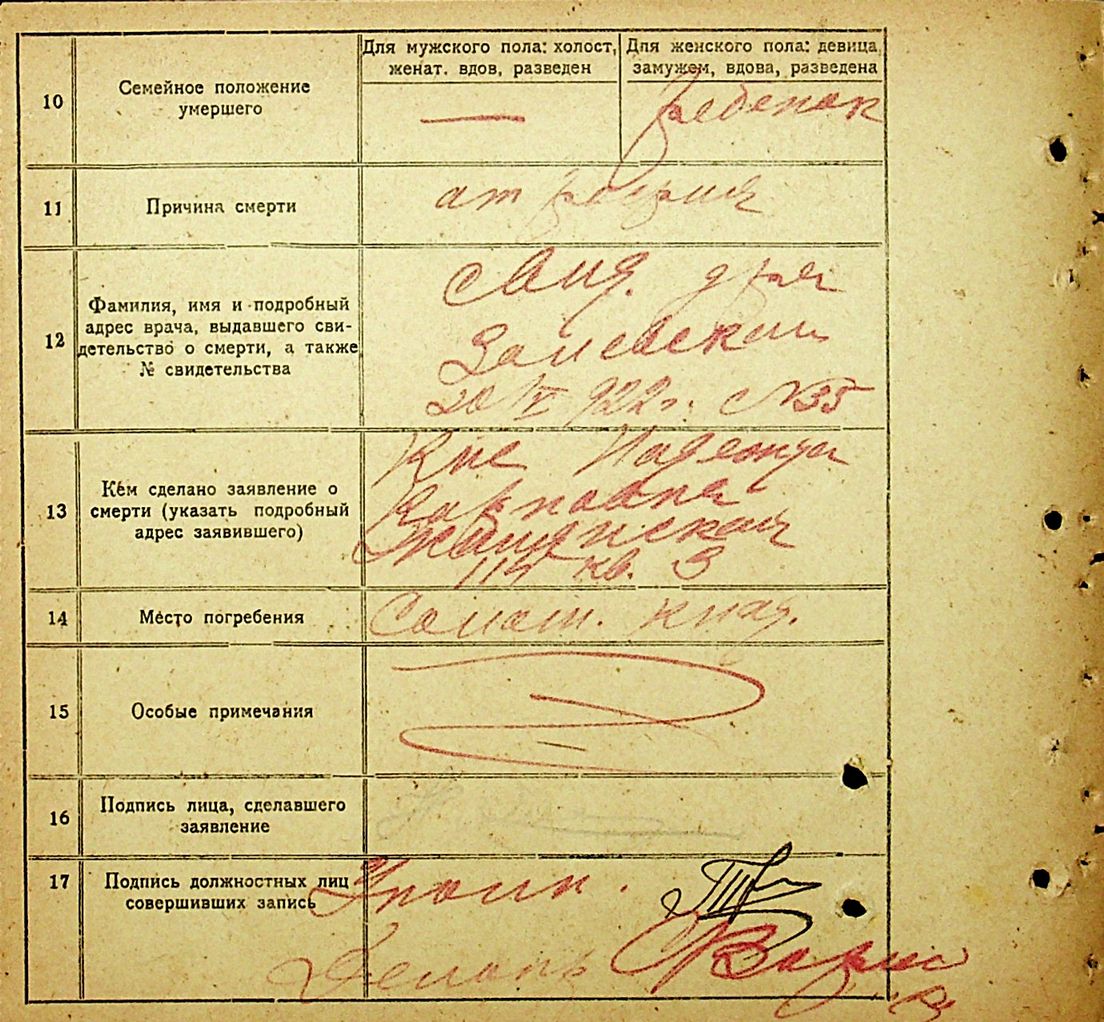 Для мужского пола: холост,
женат, вдов, разведен
Для женского пола: девица,
замужем, вдова, разведена
10
Семейное положение
умершего
—
ребенок
11
Причина смерти
атрофия
12
Фамилия, имя и подробный
адрес врача, выдавшего сви-
детельство о смерти, а также
№ свидетельства
д-ра
20/V 922 г. №35
13
Кем сделано заявление о
смерти (указать подробный
адрес заявившего)
Надежда
Карповна
114 кв. 3
14
Место погребения
Солом. клад.
15
Особые примечания
16
Подпись лица, сделавшего
заявление
17
Подпись должностных лиц
совершивших запись
Уполн.
Делопр